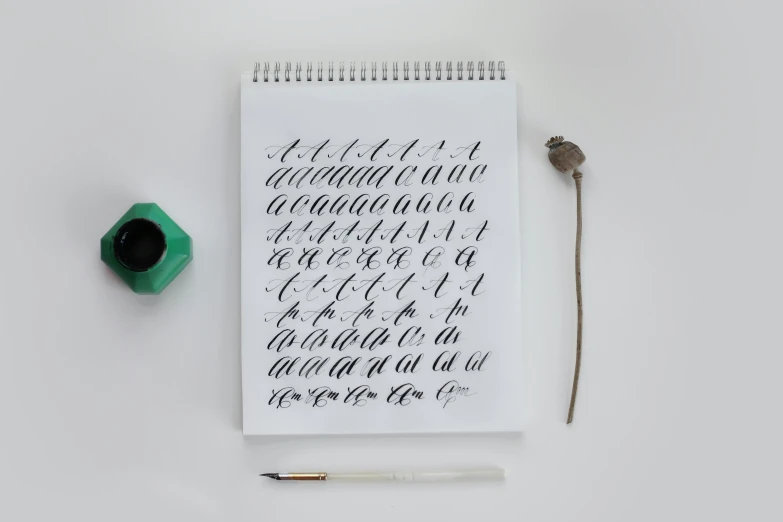 A A A A A A A
a a a a a a a a a a
a a a a a a a a a a
A A A A A A A A A
A A A A A A A
A A A A A A A
An An An An An
As As As As As As
al al al al al al al
am am am am am